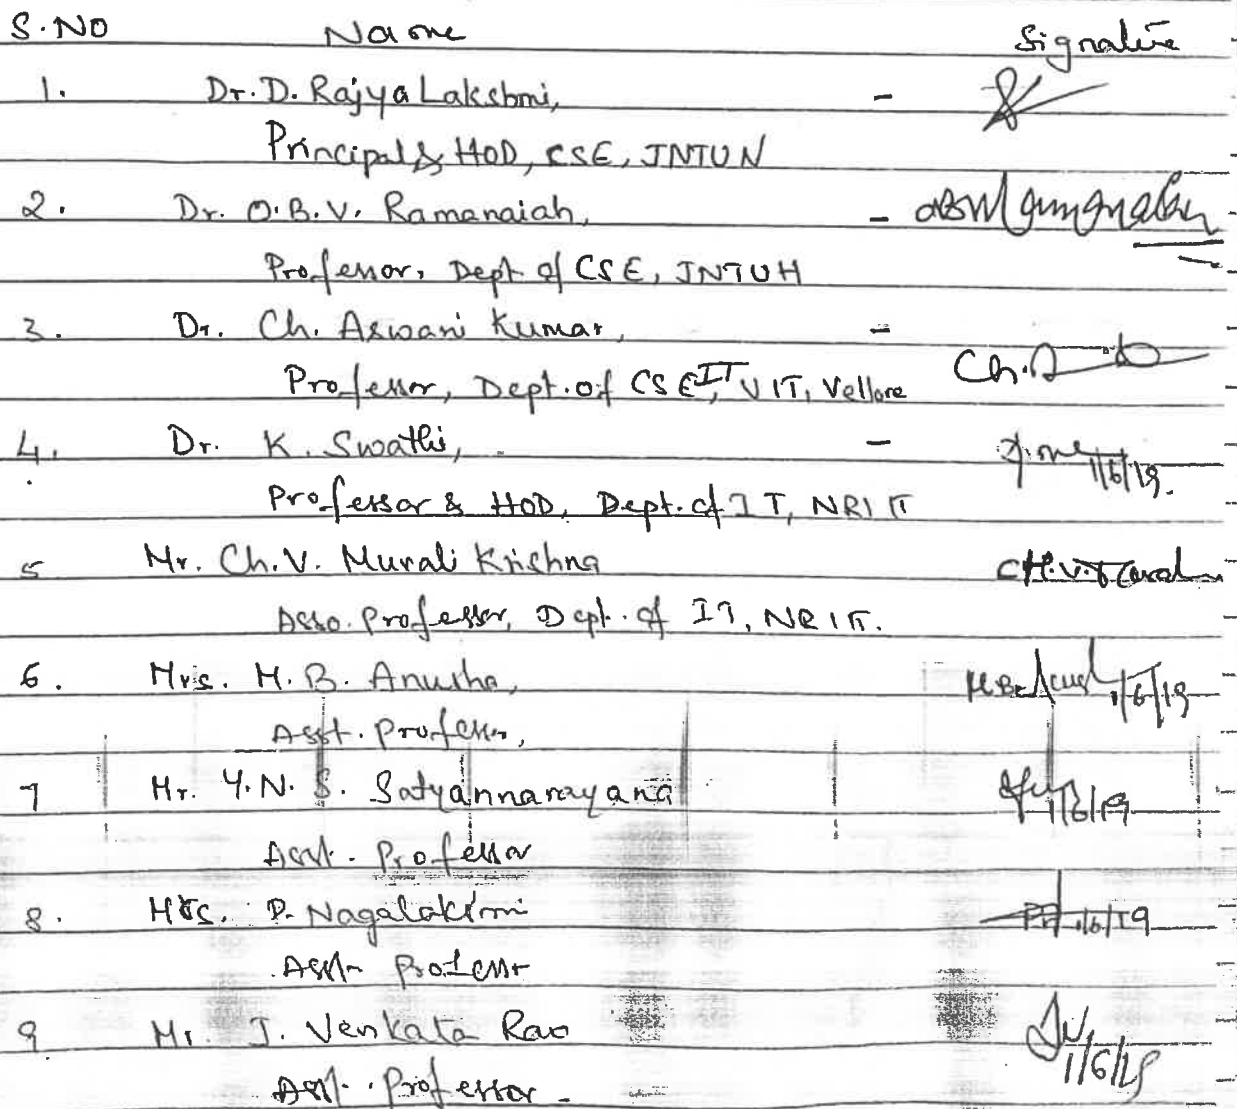 S.NO Name Signature
1. Dr. D. Rajya Lakshmi, -
Principal & HOD, CSE, JNTUN
2. Dr. O.B.V. Ramanaiah, -
Professor, Dept of CSE, JNTUH
3. Dr. Ch. Aswani Kumar, -
Professor, Dept. of CSE, IT VIT, Vellore
Ch.
4. Dr. K. Swathi, - 1/6/19.
Professor & HOD, Dept. of IT, NRIIT
5 Mr. Ch.V. Murali Krishna CH.V.
Asso. Professor, Dept. of IT, NRIIT.
6. Mrs. M.B. Anusha, 1/6/19
Asst. Professor,
7 Mr. Y.N.S. Satyannarayana 1/6/19
Asst. Professor
8. Mrs. D. Nagalakshmi 1/6/19
Asst. Professor
9 Mr. J. Venkata Rao
1/6/19
Asst. Professor -